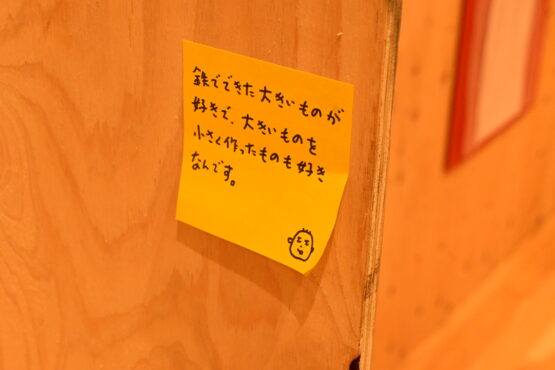 鉄でできた大きいものが
好きで、大きいものを
小さく作ったものも好き
なんです。